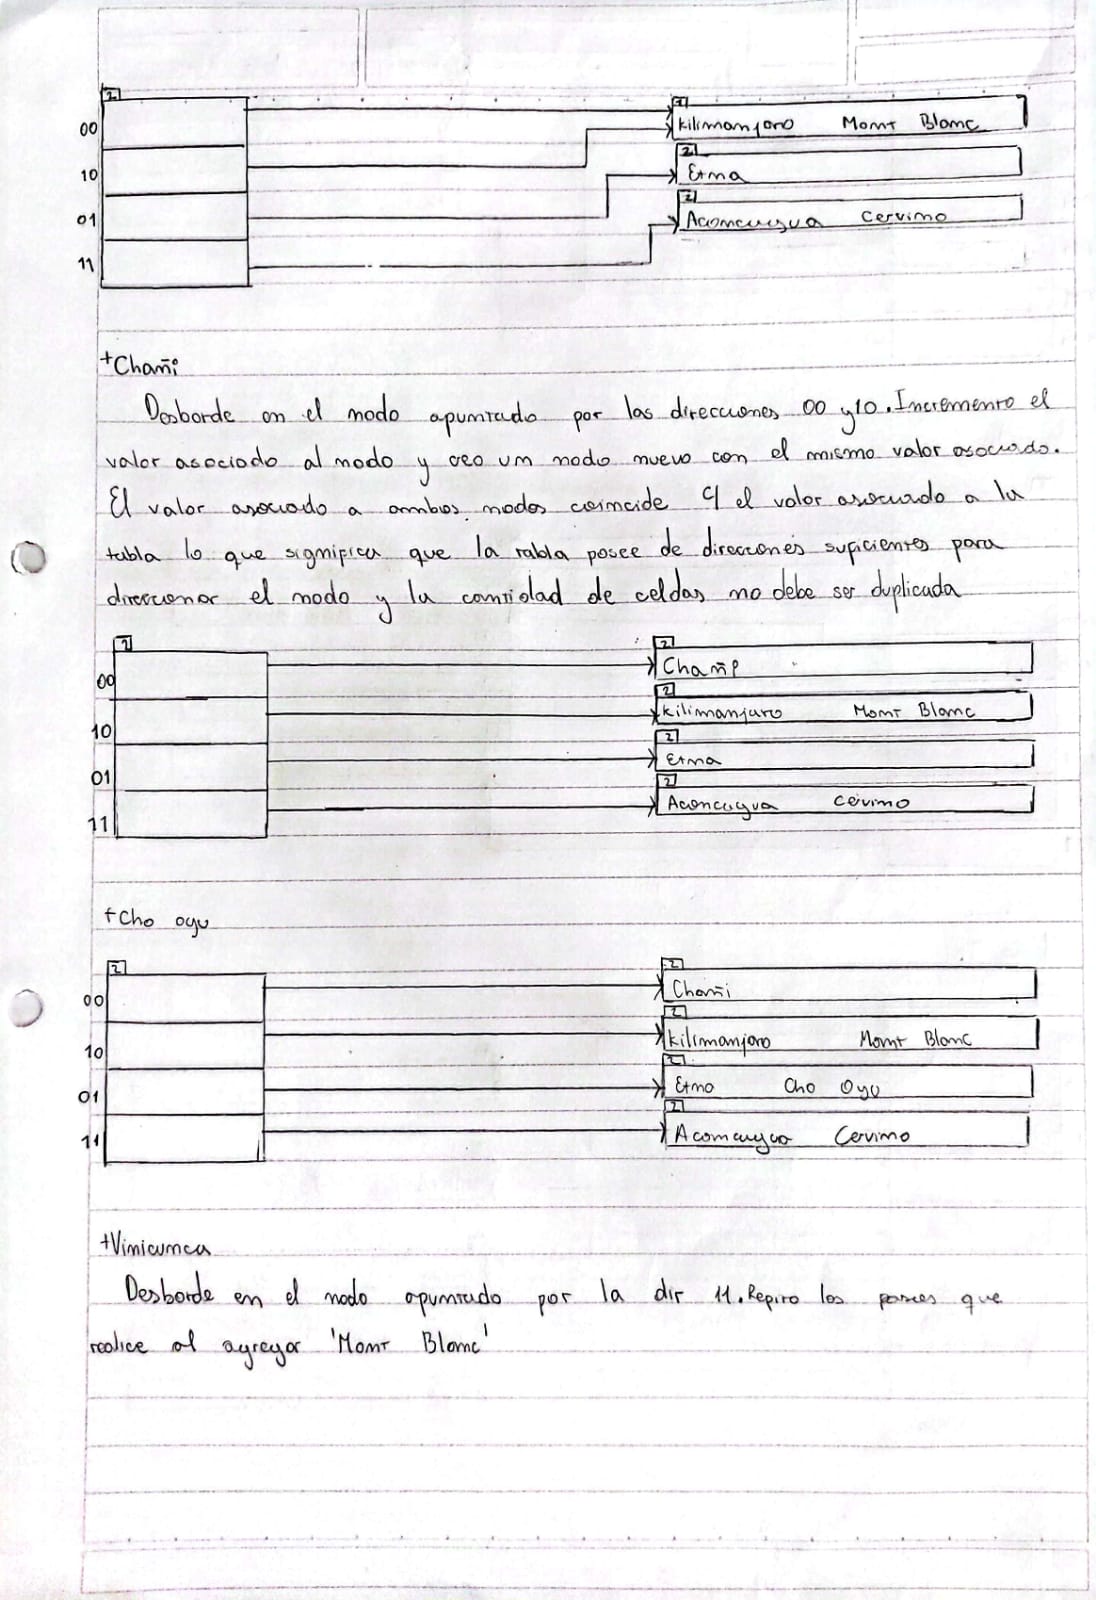 2
00
10
01
11
1
Kilimanjaro Mont Blanc
2
Etna
2
Aconcagua Cervino
+Chañi
Desborde en el nodo apuntado por las direcciones 00 y 10. Incremento el
valor asociado al nodo y creo un nodo nuevo con el mismo valor asociado.
El valor asociado a ambos nodos coincide c/ el valor asociado a la
tabla lo que significa que la tabla posee de direcciones suficientes para
direccionar el nodo y la cantidad de celdas no debe ser duplicada
2
00
10
01
11
2
Chañi
2
Kilimanjaro Mont Blanc
2
Etna
2
Aconcagua Cervino
+Cho oyu
2
00
10
01
11
2
Chañi
2
Kilimanjaro Mont Blanc
2
Etna Cho Oyu
2
Aconcagua Cervino
+Vinicunca
Desborde en el nodo apuntado por la dir 11. Repito los pasos que
realice al agregar 'Mont Blanc'